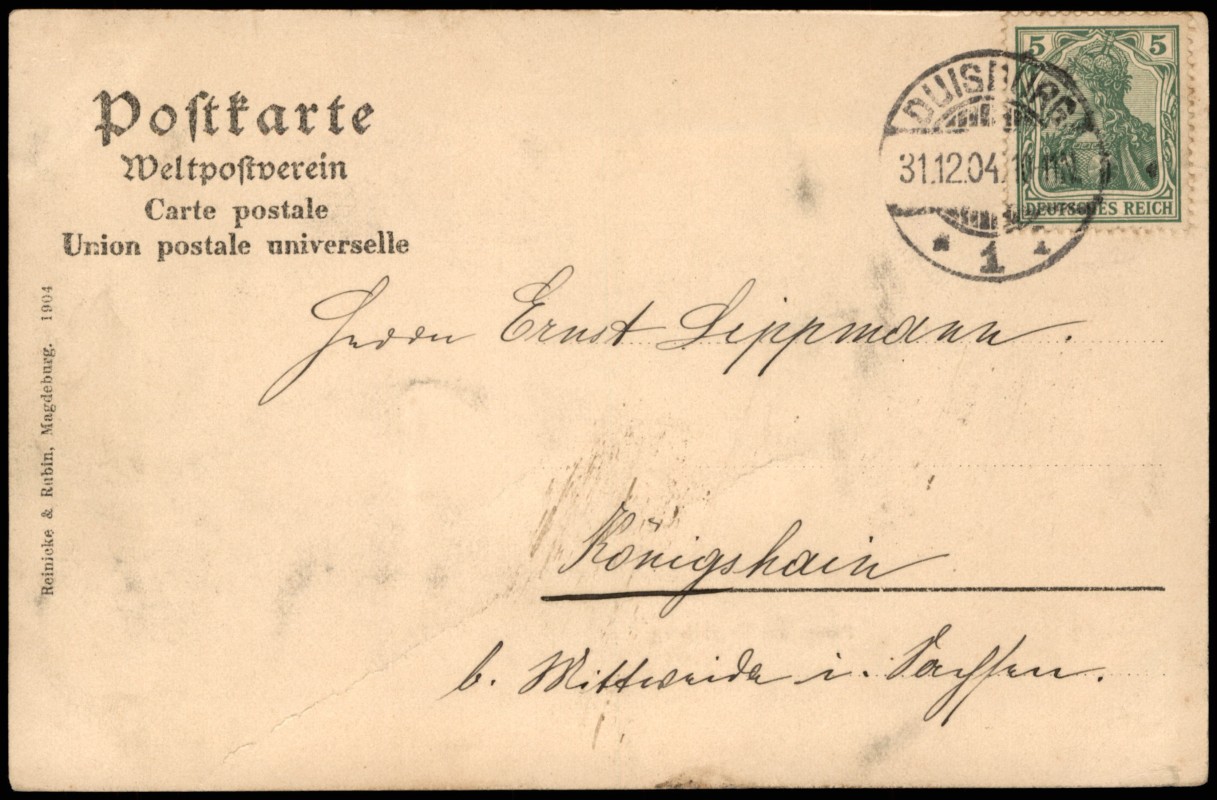 Postkarte
Weltpostverein
Carte postale
Union postale universelle
5 5
DEUTSCHES REICH
DUISBURG
31.12.04
1
Herrn Ernst Lippmann.
Königshain
b. Mittweida i. Sachsen.
Reinicke & Rubin, Magdeburg. 1904